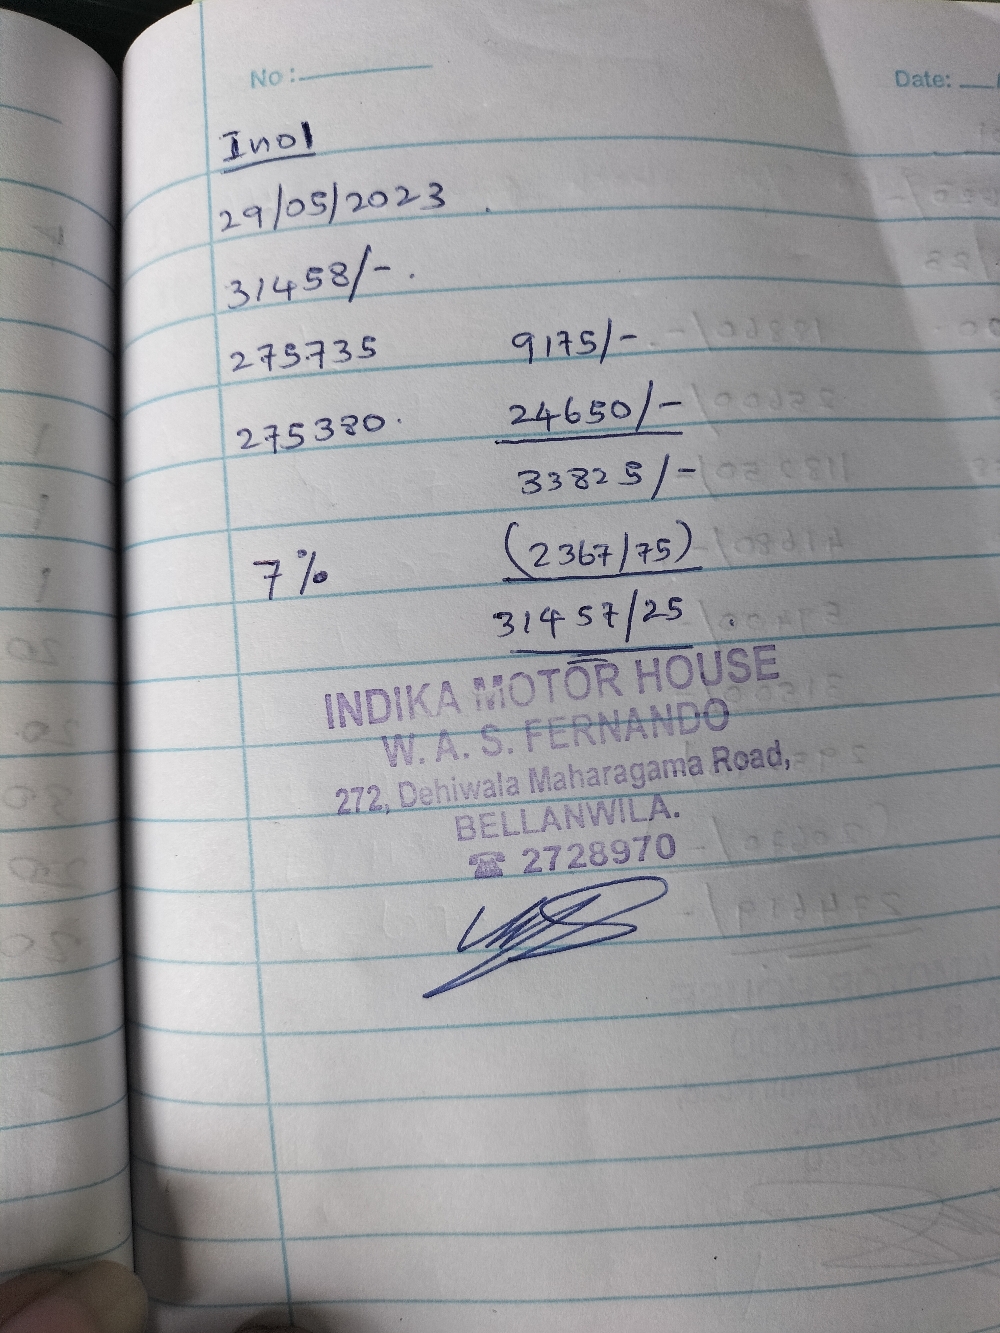 No :
Date:
Inol
29/05/2023
31458/-.
275735 9175/-
275380. 24650/-
33825/-
7% (2367/75)
31457/25
INDIKA MOTOR HOUSE
W. A. S. FERNANDO
272, Dehiwala Maharagama Road,
BELLANWILA.
☎ 2728970